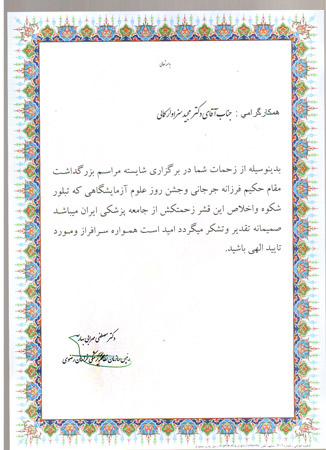 همکار گرامی : جناب آقای دکتر مجید
بدینوسیله از زحمات شما در برگزاری شایسته مراسم بزرگداشت
مقام حکیم فرزانه جرجانی وجشن روز علوم آزمایشگاهی که تبلور
شکوه واخلاص این قشر زحمتکش از جامعه پزشکی ایران میباشد
صمیمانه تقدیر وتشکر میگردد امید است همواره سرافراز ومورد
تایید الهی باشید.
دکتر مصطفی